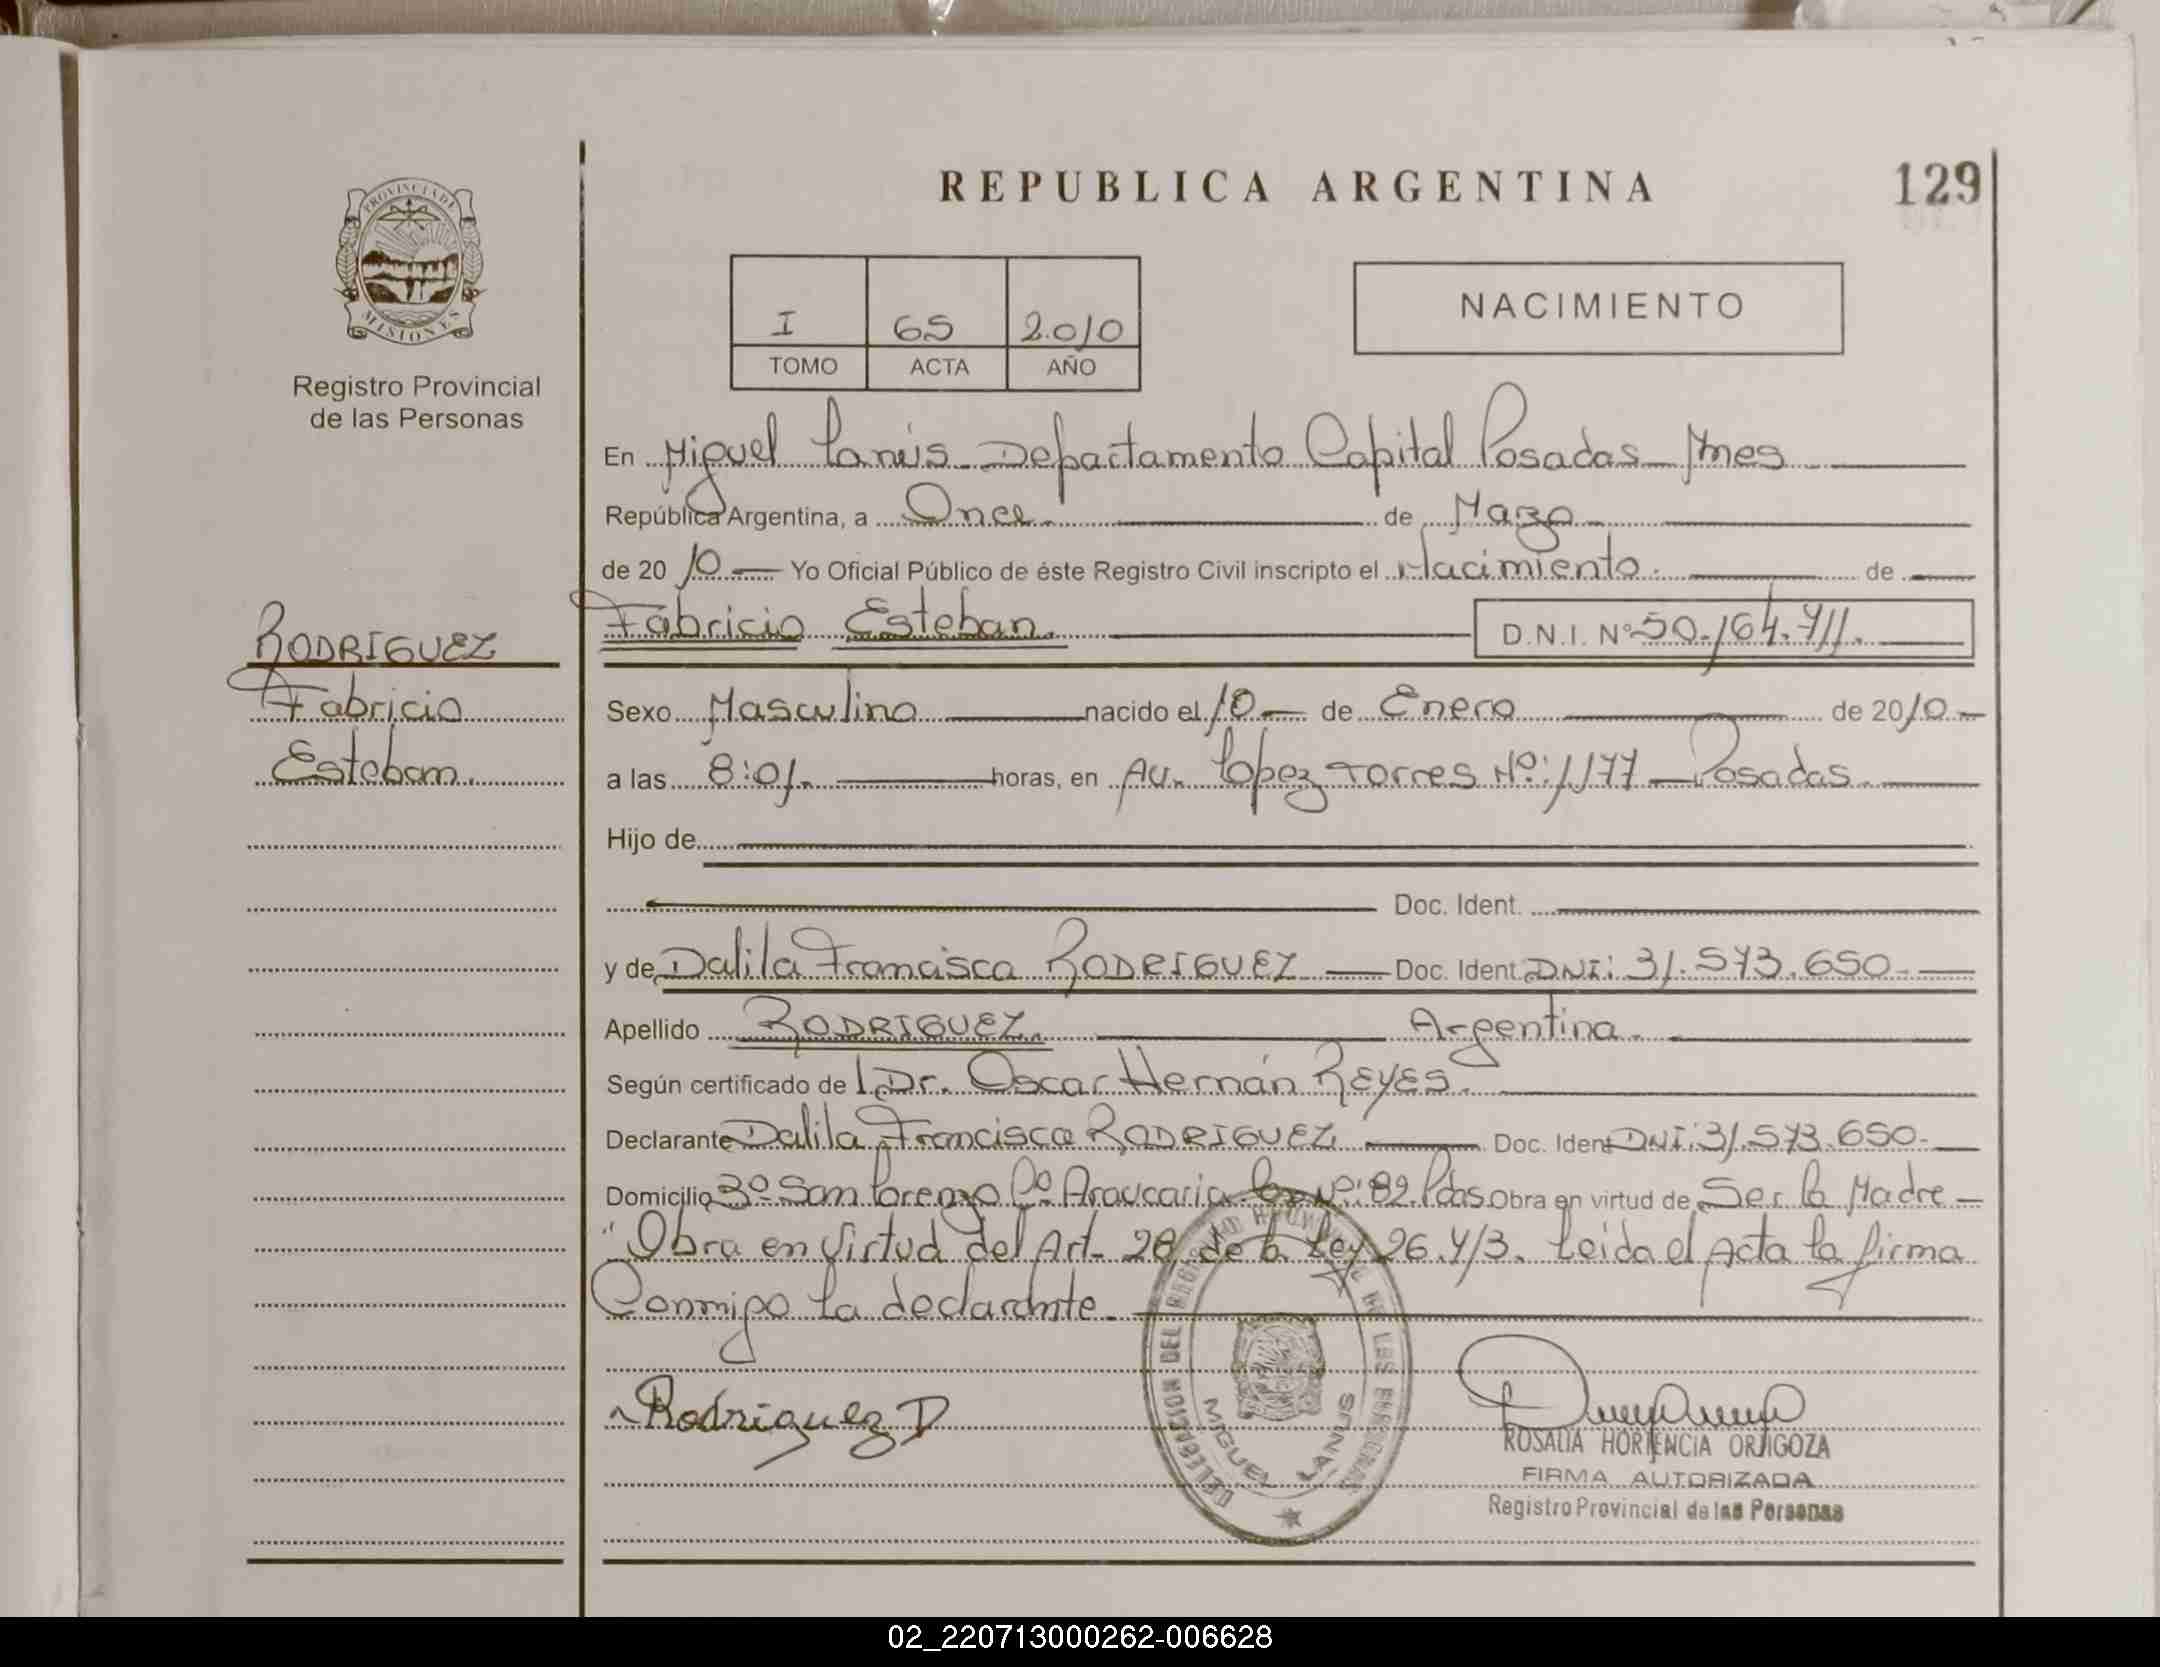 REPUBLICA ARGENTINA
129
PROVINCIA DE
MISIONES
Registro Provincial
de las Personas
I 65 2.010
TOMO ACTA AÑO
NACIMIENTO
En Miguel Lanús - Departamento Capital Posadas - Mnes
República Argentina, a Once. de Marzo
de 20 10 Yo Oficial Público de éste Registro Civil inscripto el Nacimiento. de
Fabricio Esteban. D.N.I. Nº 50.164.711.
RODRIGUEZ
Fabricio
Esteban.
Sexo Masculino nacido el 10 de Enero de 2010
a las 8:01. horas, en Av. Lopez Torres Nº: 1177 - Posadas.
Hijo de
Doc. Ident.
y de Dalila Francisca RODRIGUEZ Doc. Ident. DNI: 31.573.650.
Apellido RODRIGUEZ. Argentina.
Según certificado de l Dr. Oscar Hernán REYES.
Declarante Dalila Francisca RODRIGUEZ Doc. Ident DNI: 31.573.650.
Domicilio Bº San Lorenzo Cº Araucaria Nº: 82. Pdas. Obra en virtud de Ser la Madre
"Obra en Virtud del Art. 28 de la Ley 26.413. Leida el Acta la firma
Conmigo la declarante.
Rodriguez D
DELEGACION DEL REGISTRO PROVINCIAL DE LAS PERSONAS
MIGUEL LANUS
ROSALIA HORTENCIA ORTIGOZA
FIRMA AUTORIZADA
Registro Provincial de las Personas
02_220713000262-006628